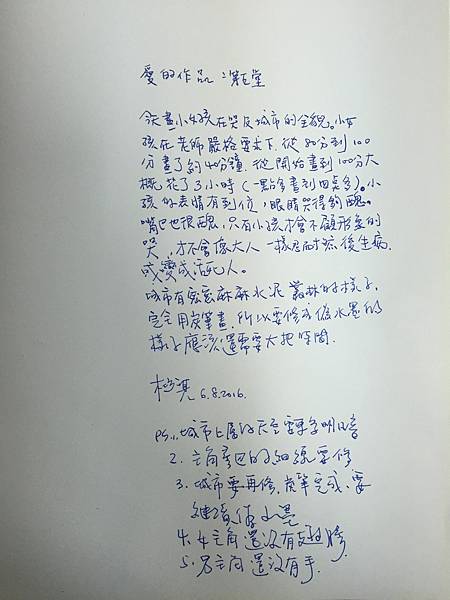 愛的作品:深石堂
今天畫小女孩在哭及城市的全貌。小女
孩在老師嚴格要求下,從80分到100
分畫了約40分鐘,從開始畫到100分大
概花了3小時(一點多畫到四點多)。小
孩的表情有到位,眼睛哭得夠醜。
嘴巴也很醜,只有小孩才會不顧形象的
哭,才不會像大人一樣忍耐然後生病.
或變成活死人。
城市有密密麻麻水泥叢林的樣子,
完全用炭筆畫,所以要修成像水墨的
樣子應該還需要大把時間.
6.8.2016.
PS.1.城市上層的天空
2.主角嘴巴的細線要修
3.城市要再修,炭筆完成,要
繼續像水墨
4.女主角還沒有
5.男主角還沒有手.